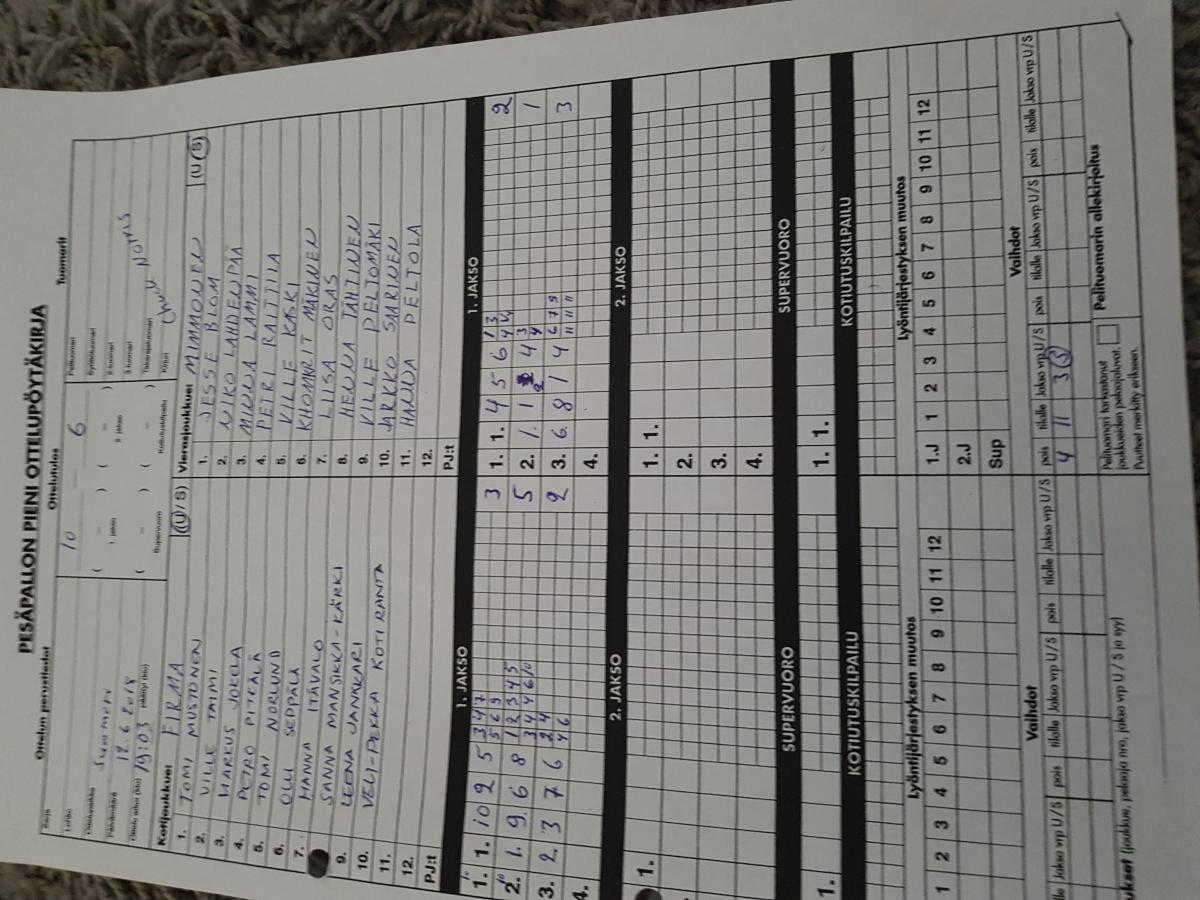 PESÄPALLON PIENI OTTELUPÖYTÄKIRJA
Ottelun perustiedot
Ottelutulos
Tuomarit
Sarja
Lohko
Ottelupaikka
Päivämäärä 12.6.2018
Ottelu alkoi (klo) 19:03 päättyi (klo)
10 – 6
( – ) ( – )
1. jakso 2. jakso
( – ) ( – )
Supervuoro Kotiutuskilpailu
Pelituomari
Syöttötuomari
2-tuomari
3-tuomari
Takarajatuomari
Kirjuri Chuck Norris
Kotijoukkue: FIRMA (U / S)
1. TOMI MUSTONEN
2. VILLE TAIMI
3. MARKUS JOKELA
4. PETRO PITKÄLÄ
5. TOMI NORLUND
6. OLLI SEPPÄLÄ
7. HANNA ITÄVALO
SANNA MANSIKKA-KÄRKI
9. LEENA JANKKARI
10. VELI-PEKKA KOTIRANTA
11.
12.
PJ:t
Vierasjoukkue: MIMMONEN (U / S)
1. JESSE BLOM
2. NIKO LAHDENPÄÄ
3. MINNA LAMMI
4. PETRI RAITTILA
5. VILLE KASKI
6. KHOMRIT MÄKINEN
7. LIISA ORAS
8. HENNA TÄHTINEN
9. VILLE PELTOMÄKI
10. JARKKO SAARINEN
11. HANNA PELTOLA
12.
PJ:t
1. JAKSO
1. 1. 10 2 5 3 4 7 3
5 6 9
2. 1. 9. 6 8 1 2 3 4 5 5
3 4 4 6 10
3. 2. 3 7 6 2 4 2
4 6
4.
1. JAKSO
1. 1. 4 5 6 1 3 2
2. 1. 1 2 4 3 1
4
3. 6. 8 1 4 6 7 9 3
11 11 11
4.
2. JAKSO
1.
2. JAKSO
1. 1.
2.
3.
4.
SUPERVUORO
1.
SUPERVUORO
1. 1.
KOTIUTUSKILPAILU
KOTIUTUSKILPAILU
Lyöntijärjestyksen muutos
1 2 3 4 5 6 7 8 9 10 11 12
Lyöntijärjestyksen muutos
1 2 3 4 5 6 7 8 9 10 11 12
1.J
2.J
Sup
Vaihdot
tilalle Jakso vrp U/S pois tilalle Jakso vrp U/S pois tilalle Jakso vrp U/S
Vaihdot
pois tilalle Jakso vrp U/S pois tilalle Jakso vrp U/S pois tilalle Jakso vrp U/S
4 11 3 (S)
(joukkue, pelaaja nro, jakso vrp U / S ja syy)
Pelituomari tarkastanut
joukkueiden pelaajaluvat.
Puutteet merkitty erikseen.
Pelituomarin allekirjoitus